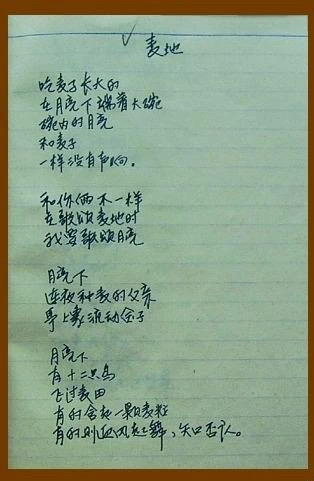 麦地
吃麦子长大的
在月亮下端着大碗
碗内的月亮
和麦子
一样没有声响。
和你俩不一样
在歌颂麦地时
我要歌颂月亮
月亮下
连夜种麦的父亲
身上象流动金子
月亮下
有十二只鸟
飞过麦田
有的含起一颗麦粒
有的则迎风起舞,矢口否认。